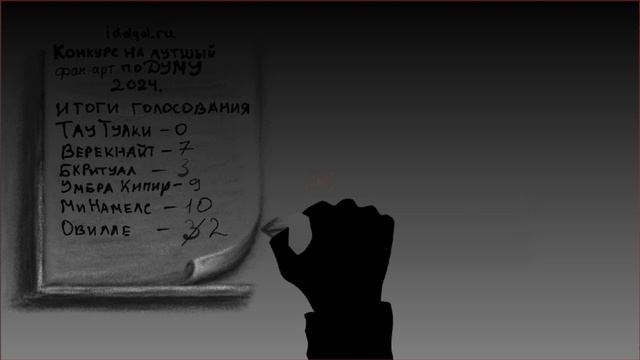 iddqd.ru
Конкурс на лутший
фан-арт по ДУМУ
2024.
итоги голосования
ТауТулки - 0
Верекнайт - 7
Бкритуал - 3
Умбра Кипир - 9
МиНамелс - 10
Овилле - 2